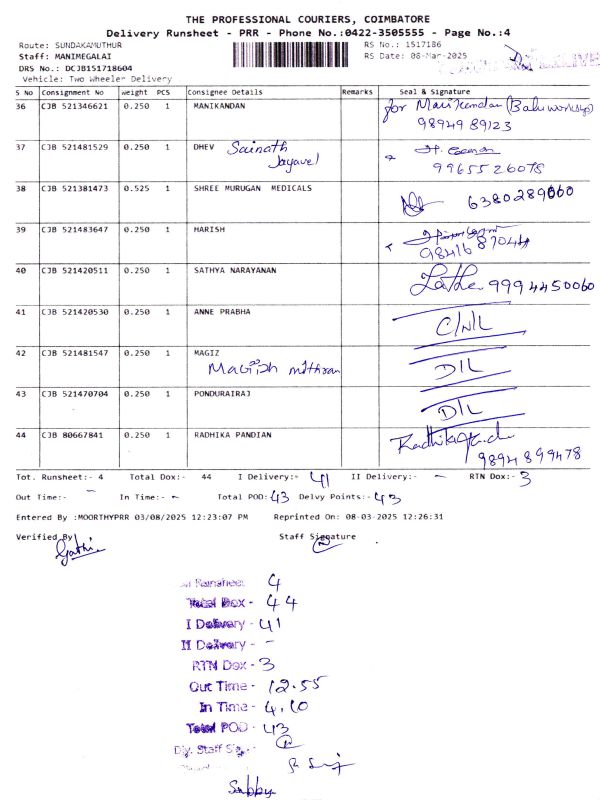 THE PROFESSIONAL COURIERS, COIMBATORE
Delivery Runsheet - PRR - Phone No.:0422-3505555 - Page No.:4
Route: SUNDAKAMUTHUR RS No.: 1517186
Staff: MANIMEGALAI RS Date: 08-Mar-2025
DRS No.: DCJB151718604
Vehicle: Two Wheeler Delivery
S No Consignment No Weight PCS Consignee Details Remarks Seal & Signature
36 CJB 521346621 0.250 1 MANIKANDAN for Manikandan (Babu workshop)
9894989123
37 CJB 521481529 0.250 1 DHEV Sainath Jayavel
9965526078
38 CJB 521381473 0.525 1 SHREE MURUGAN MEDICALS 6380289060
39 CJB 521483647 0.250 1 HARISH
9841687044
40 CJB 521420511 0.250 1 SATHYA NARAYANAN Latha 9994450060
41 CJB 521420530 0.250 1 ANNE PRABHA C/N/L
42 CJB 521481547 0.250 1 MAGIZ D/L
Magizh mithran
43 CJB 521470704 0.250 1 PONDURAIRAJ D/L
44 CJB 80667841 0.250 1 RADHIKA PANDIAN Radhika
9894899478
Tot. Runsheet:- 4 Total Dox:- 44 I Delivery:- 41 II Delivery:- - RTN Dox:- 3
Out Time:- - In Time:- - Total POD:- 43 Delvy Points:- 43
Entered By :MOORTHYPRR 03/08/2025 12:23:07 PM Reprinted On: 08-03-2025 12:26:31
Verified By Staff Signature
Runsheet 4
Total Dox - 44
I Delivery - 41
II Delivery - -
RTN Dox - 3
Out Time - 12.55
In Time - 4.10
Total POD - 43
Dly. Staff Sig. -